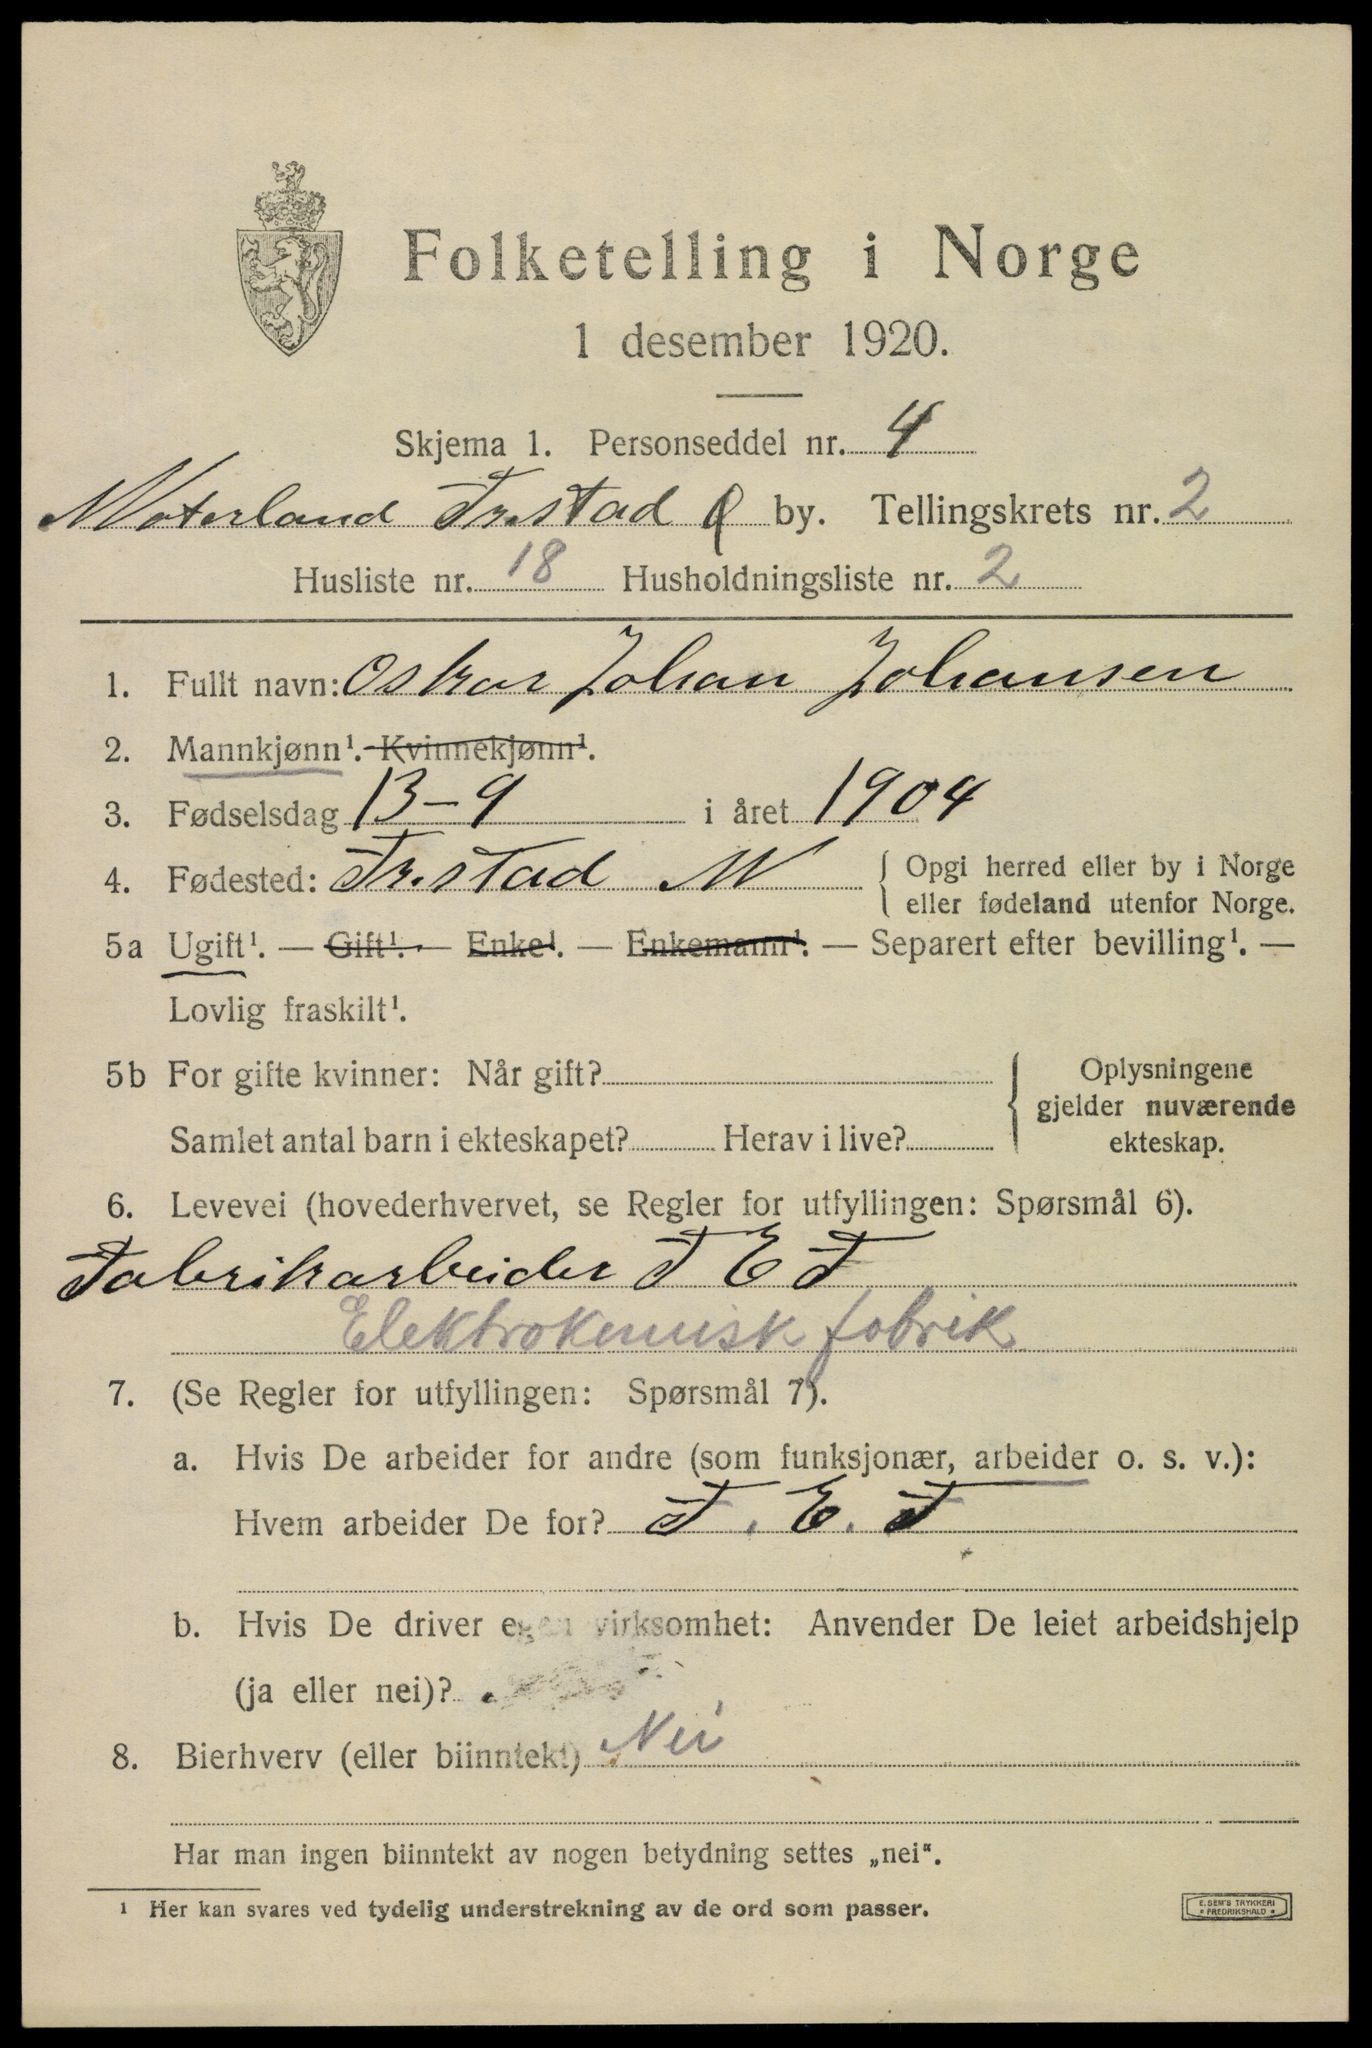 Folketelling i Norge
1 desember 1920.
Skjema 1. Personseddel nr. 4
Moterland Fr.stad by. Tellingskrets nr. 2
Husliste nr. 18 Husholdningsliste nr. 2
1. Fullt navn: Oskar Johan Johansen
2. Mannkjønn¹. Kvinnekjønn¹.
3. Fødselsdag 13-9 i året 1904
4. Fødested: Fr.stad M { Opgi herred eller by i Norge
eller fødeland utenfor Norge.
5a Ugift¹. — Gift¹. — Enke¹. — Enkemann¹. — Separert efter bevilling¹. —
Lovlig fraskilt¹.
5b For gifte kvinner: Når gift?
Samlet antal barn i ekteskapet? Herav i live?
{ Oplysningene
gjelder nuværende
ekteskap.
6. Levevei (hovederhvervet, se Regler for utfyllingen: Spørsmål 6).
Fabrikarbeider F E F
Elektrokemisk fabrik
7. (Se Regler for utfyllingen: Spørsmål 7).
a. Hvis De arbeider for andre (som funksjonær, arbeider o. s. v.):
Hvem arbeider De for? F. E. F
b. Hvis De driver egen virksomhet: Anvender De leiet arbeidshjelp
(ja eller nei)?
8. Bierhverv (eller biinntekt) Nei
Har man ingen biinntekt av nogen betydning settes „nei“.
¹ Her kan svares ved tydelig understrekning av de ord som passer.
E. SEM'S TRYKKERI
* FREDRIKSHALD *